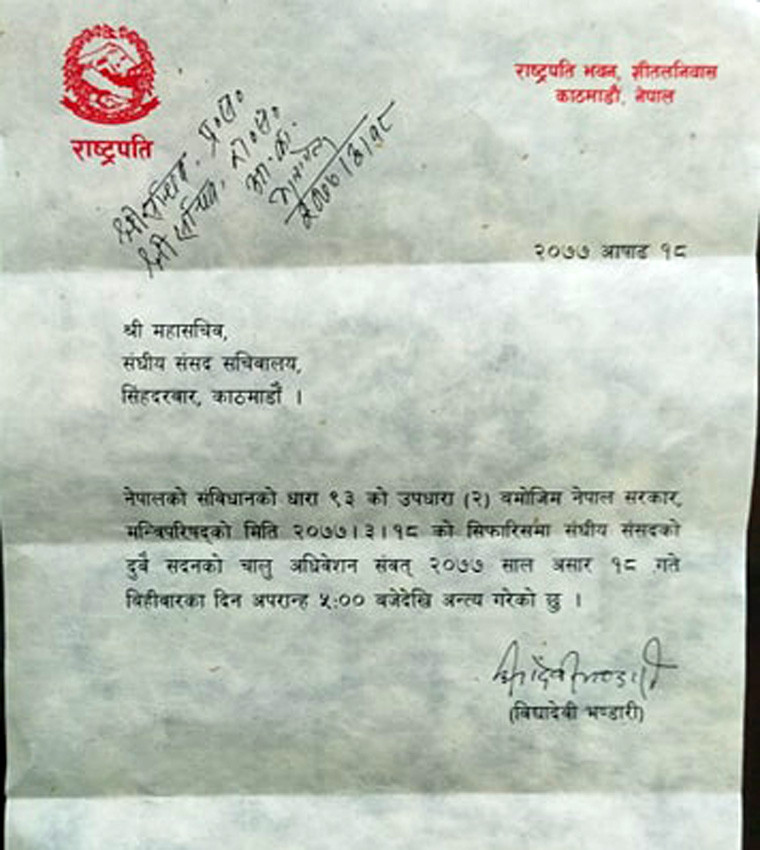 राष्ट्रपति
राष्ट्रपति भवन, शीतलनिवास
काठमाडौं, नेपाल
श्री सचिव, प्र.स.
श्री सचिव, रा.स.
आ.का.
२०७७।३।१८
२०७७ आषाढ १८
श्री महासचिव,
संघीय संसद सचिवालय,
सिंहदरबार, काठमाडौं ।
नेपालको संविधानको धारा ९३ को उपधारा (२) बमोजिम नेपाल सरकार,
मन्त्रिपरिषद्को मिति २०७७।३।१८ को सिफारिसमा संघीय संसदको
दुवै सदनको चालु अधिवेशन संवत् २०७७ साल असार १८ गते
बिहीबारका दिन अपरान्ह ५:०० बजेदेखि अन्त्य गरेको छु ।
(विद्यादेवी भण्डारी)